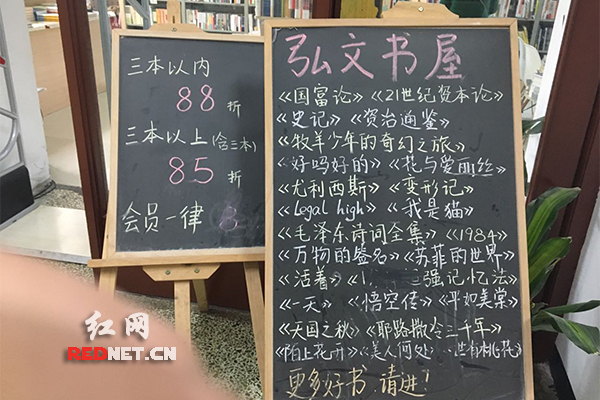 三本以内
88折
三本以上(含三本)
85折
会员一律
弘文书屋
《国富论》《21世纪资本论》
《史记》《资治通鉴》
《牧羊少年的奇幻之旅》
《好吗好的》《托与爱丽丝
《尤利西斯》《变形记》
《legal high》《我是猫》
《毛泽东诗词全集》《1984》
《万物的签名》《苏菲的世界》
《活着》《强记忆法》
《一天》《悟空传》《平如美棠》
《天国之秋》《耶路撒冷三千年》
《陌上花开》《美人何处》世有桃花》
更多好书,请进!
红网
REDNET.CN